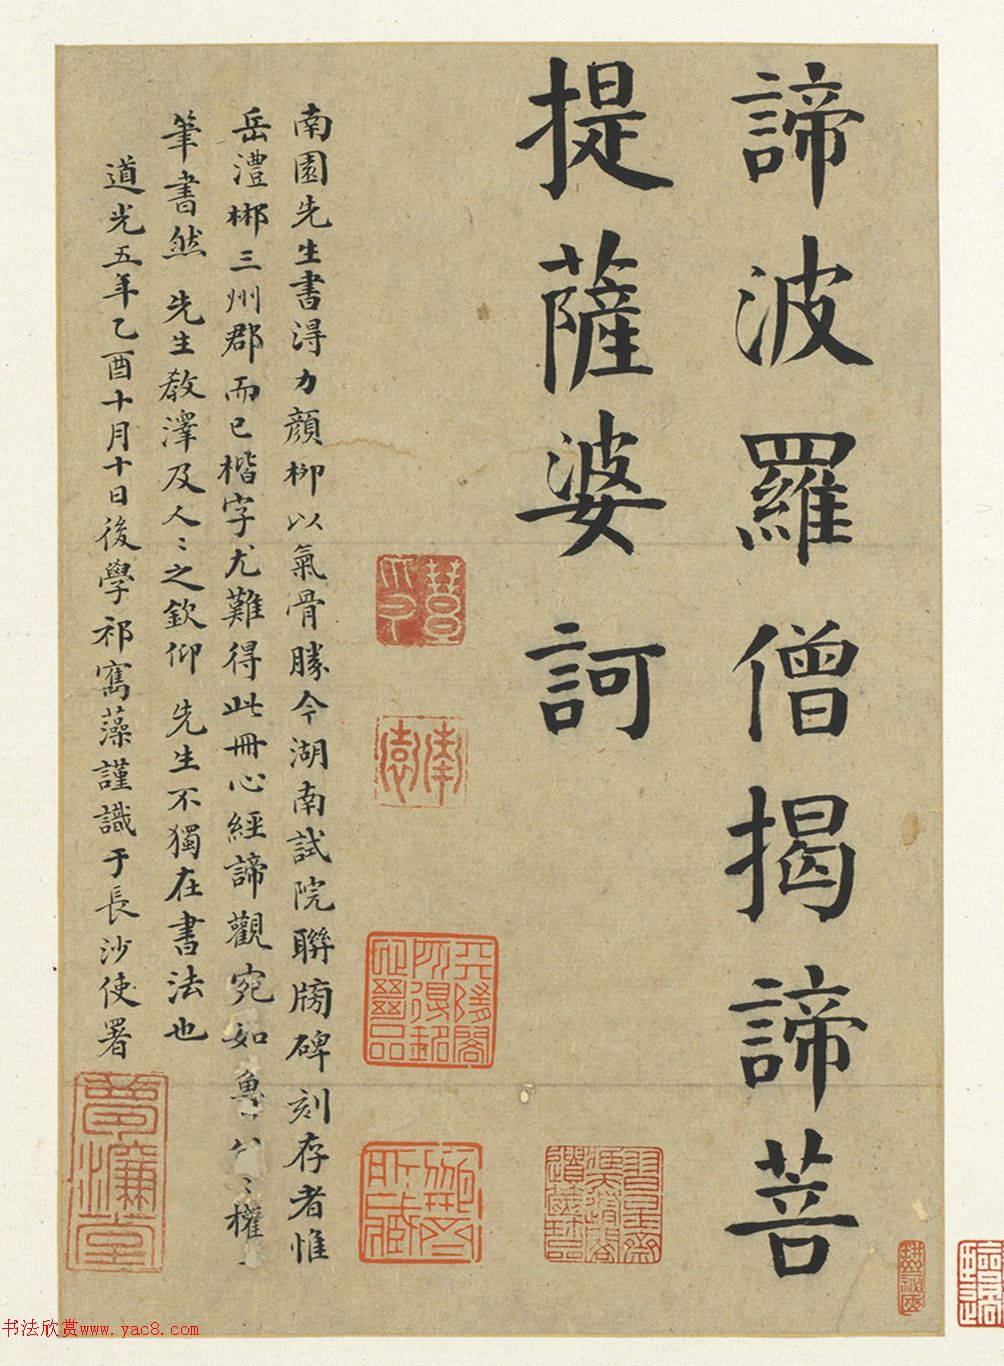 諦波羅僧揭諦菩
提薩婆訶
南園先生書淂力顏柳以氣骨勝今湖南試院聯牓碑刻存者惟
岳澧郴三州郡而已楷字尤難得此冊心經諦觀宛如魯公〻權
筆書然 先生教澤及人〻之欽仰 先生不獨在書法也
道光五年乙酉十月十日後學祁寯藻謹識于長沙使署
南園
夢濂堂
书法欣赏www.yac8.com